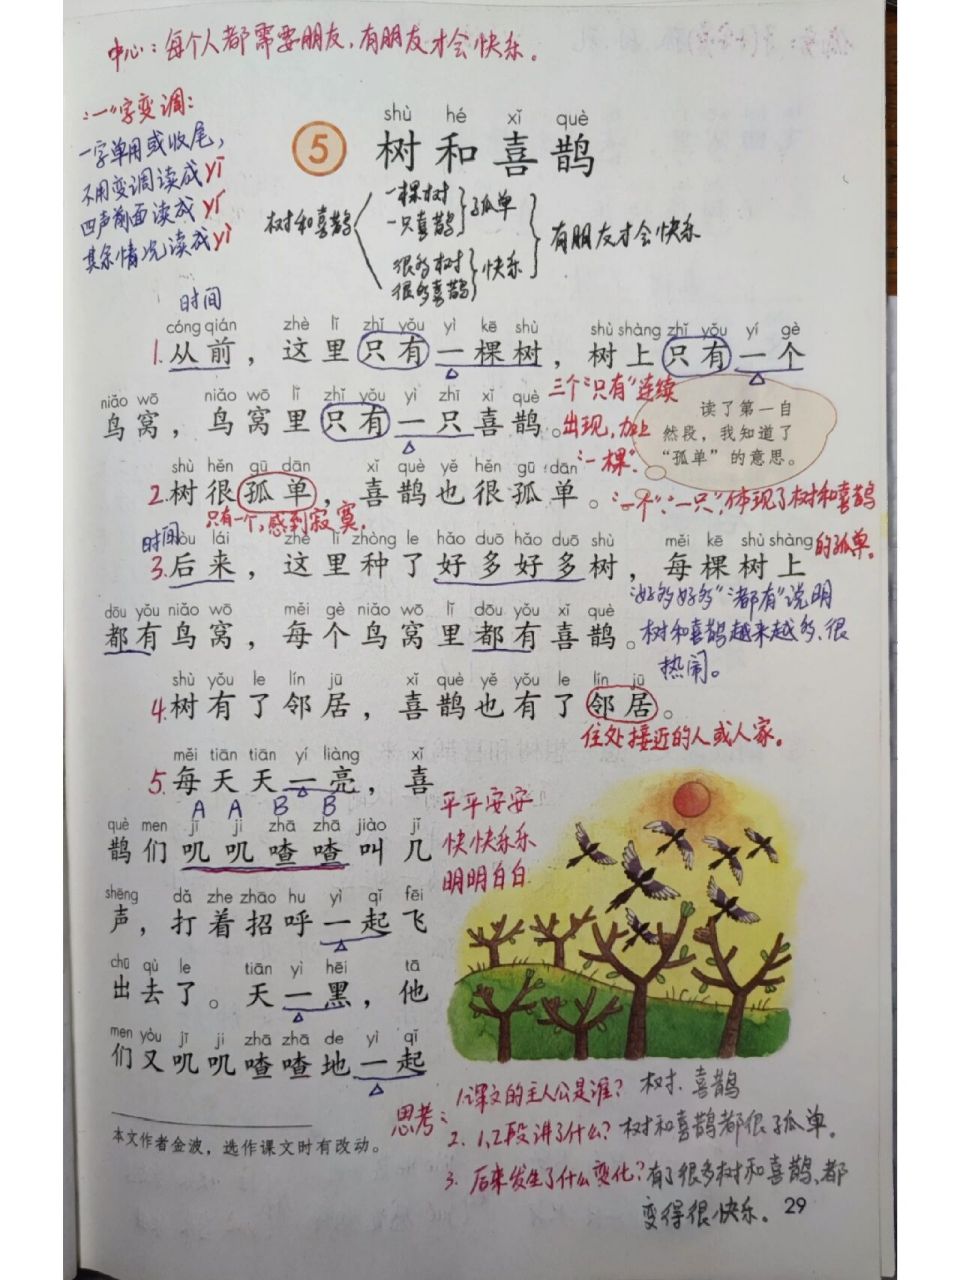 中心：每个人都需要朋友，有朋友才会快乐。
"一"字变调：
一字单用或收尾，
不用变调读成yī
四声前面读成yí
其余情况读成yì
shù hé xǐ què
5 树和喜鹊
树和喜鹊
一棵树
一只喜鹊
孤单
很多树
很多喜鹊
快乐
有朋友才会快乐
时间
cóng qián zhè lǐ zhǐ yǒu yì kē shù shù shàng zhǐ yǒu yí gè
1.从前，这里只有一棵树，树上只有一个
niǎo wō niǎo wō lǐ zhǐ yǒu yì zhī xǐ què
鸟窝，鸟窝里只有一只喜鹊。
三个"只有"连续
出现，加上
"一棵"、
"一个"、"一只"，体现了树和喜鹊
的孤单。
读了第一自
然段，我知道了
"孤单"的意思。
shù hěn gū dān xǐ què yě hěn gū dān
2.树很孤单，喜鹊也很孤单。
只有一个，感到寂寞。
时间
hòu lái zhè lǐ zhòng le hǎo duō hǎo duō shù měi kē shù shàng
3.后来，这里种了好多好多树，每棵树上
dōu yǒu niǎo wō měi gè niǎo wō lǐ dōu yǒu xǐ què
都有鸟窝，每个鸟窝里都有喜鹊。
"好多好多""都有"说明
树和喜鹊越来越多、很
热闹。
shù yǒu le lín jū xǐ què yě yǒu le lín jū
4.树有了邻居，喜鹊也有了邻居。
住处接近的人或人家。
měi tiān tiān yí liàng xǐ
5.每天天一亮，喜
A A B B
què men jī ji zhā zhā jiào jǐ
鹊们叽叽喳喳叫几
shēng dǎ zhe zhāo hu yì qǐ fēi
声，打着招呼一起飞
chū qù le tiān yì hēi tā
出去了。天一黑，他
men yòu jī ji zhā zhā de yì qǐ
们又叽叽喳喳地一起
平平安安
快快乐乐
明明白白
本文作者金波，选作课文时有改动。
思考：
1.课文的主人公是谁？树、喜鹊
2. 1、2段讲了什么？树和喜鹊都很孤单。
3. 后来发生了什么变化？有了很多树和喜鹊、都
变得很快乐。
29